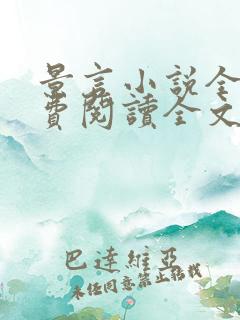 景言小說全
費閱讀全文
巴達維亞
未經同意禁止轉載